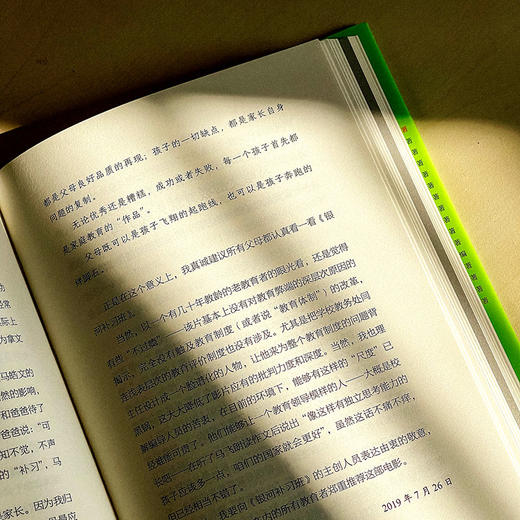 经常
际上
为拿文
马皓文的
然的影响，
和爸爸待了
爸爸说：“可
知不觉，不声
的“补习”，马
家长。因为我归
都是父母良好品质的再现；孩子的一切缺点，都是家长自身
问题的复制。
无论优秀还是糟糕，成功或者失败，每一个孩子首先都
是家庭教育的“作品”。
父母既可以是孩子飞翔的起跑线，也可以是孩子奔跑的
绊脚石。
正是在这个意义上，我真诚建议所有父母都认真看一看《银
河补习班》。
当然，以一个有几十年教龄的老教育者的眼光看，还是觉得
有些“不过瘾”——该片基本上没有对教育弊端的深层次原因的
揭示，完全没有触及教育制度（或者说“教育体制”）的改革，
连浅表层次的教育评价制度也没有涉及。尤其是把学校教务处阎
主任设计成一个脸谱化的人物，让他来为整个教育制度的问题背
黑锅，这大大降低了影片应有的批判力度和深度。当然，我也理
解编导人员的苦衷，在目前的环境下，能够有这样的“尺度”已
经难能可贵了。他们能够让一个教育领导模样的人——大概是校
长吧——在听了马飞朗读作文后说出“像这样有独立思考能力的
孩子应该多一点，咱们的国家就会更好”，虽然这话不痛不痒，
但已经相当不错了。
我要向《银河补习班》的主创人员表达由衷的敬意，
内的所有教育者郑重推荐这部电影。
2019 年 7 月 26 日